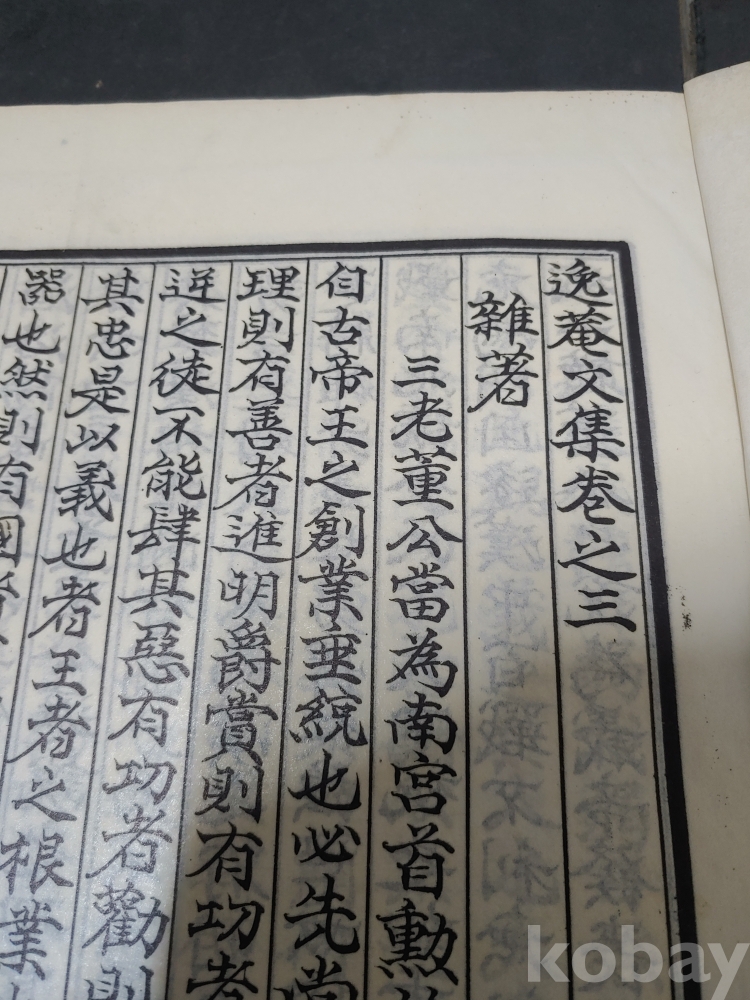 逸菴文集卷之三
雜著
三老董公當為南宮首勲
自古帝王之創業垂統也必先尚
理則有善者進明爵賞則有功者
逆之徒不能肆其惡有功者勸則
其忠是以義也者王者之根業
器也然則有國者
kobay